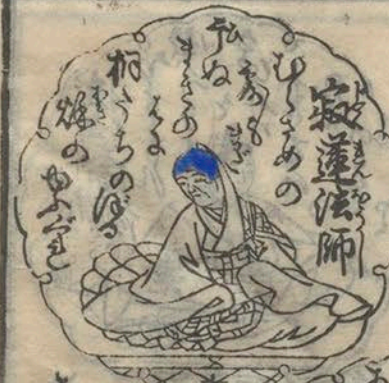 寂蓮法師
むらさめの
露もまだ
ひぬ
まきの
はに
桐たちのぼる
秋の
ゆふぐれ